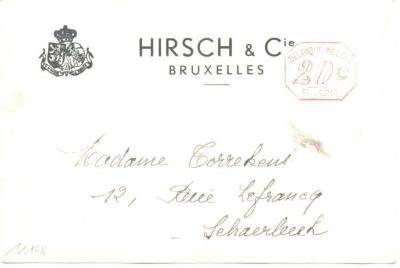 HIRSCH & Cie
BRUXELLES
BELGIQUE-BELGIË
20c
Madame Torrekens
12, Rue Lefrancq
Schaerbeek